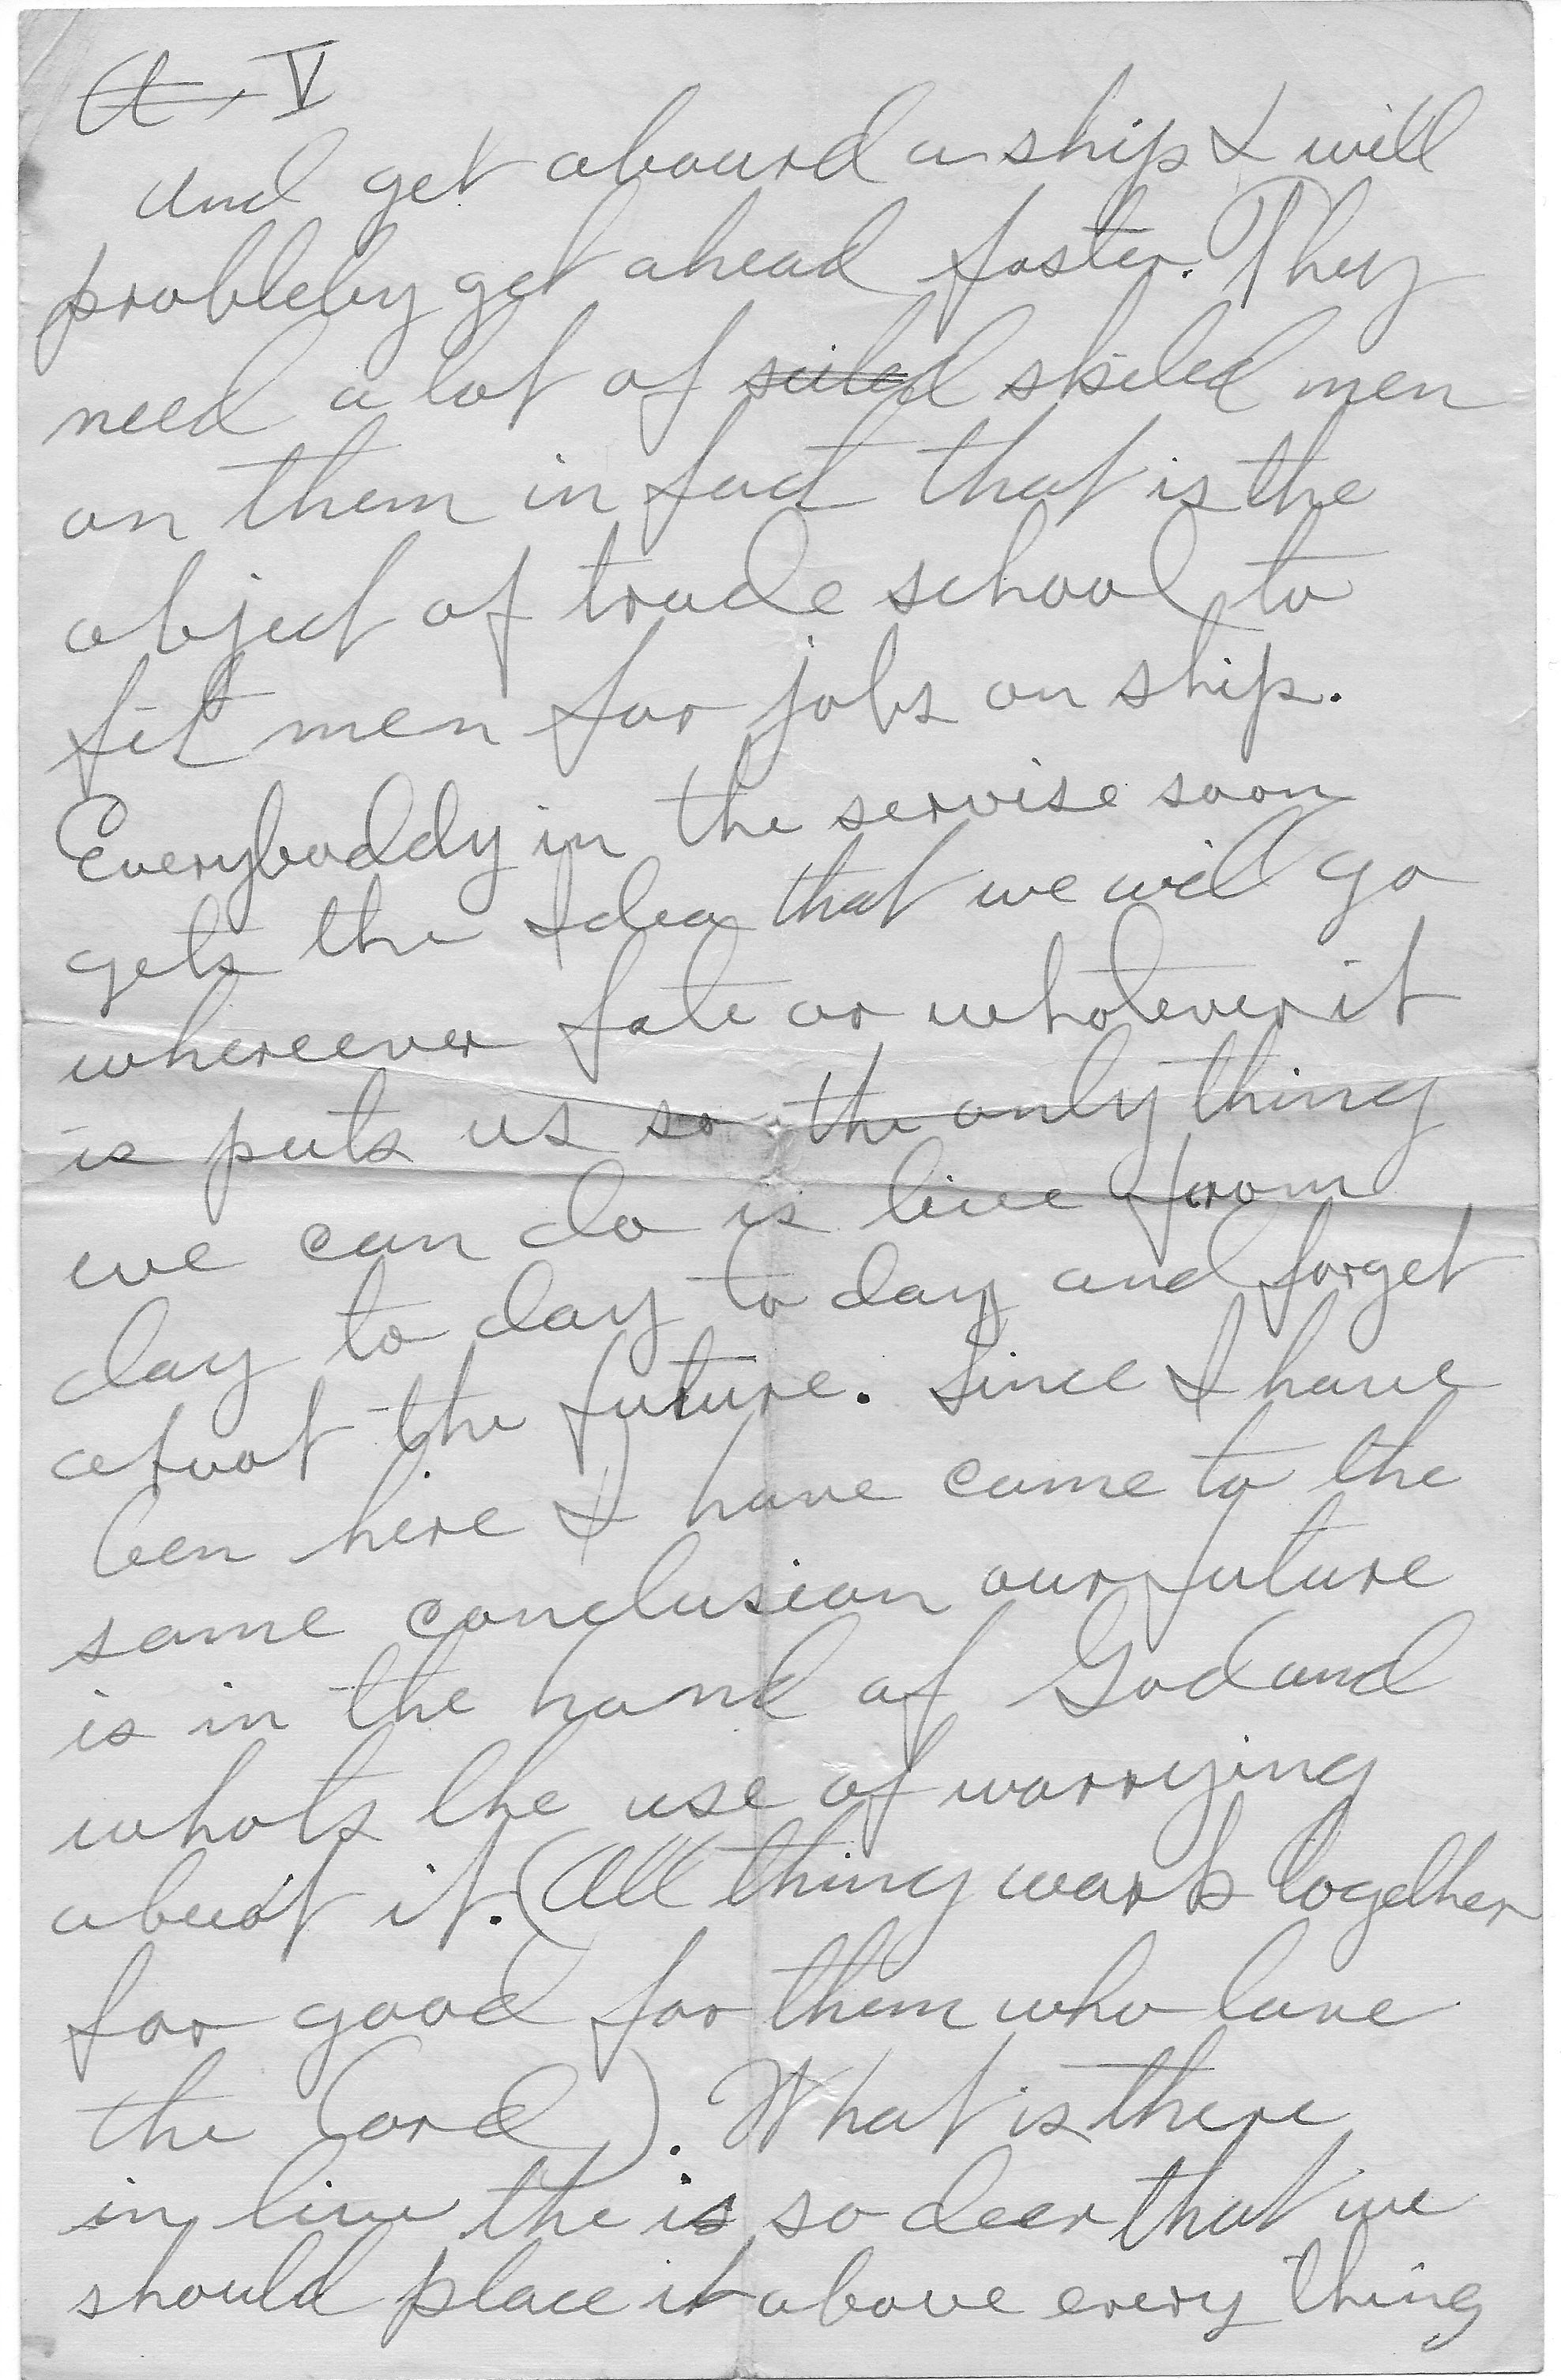 V
and get aboard a ship I will
probleby get ahead faster. They
need a lot of skiled men
on them in fact that is the
object of trade school to
fit men for jobs on ship.
Everyboddy in the servise soon
gets the Idea that we will go
whereever fate or whatever it
is puts us so the only thing
we can do is live from
day to day to day and forget
about the future. Since I have
ben here I have come to the
same conclusion our future
is in the hand of God and
whats the use of worrying
about it. (All thing work together
for good for them who love
the Lord). What is there
in live the is so deer that we
should place it above every thing